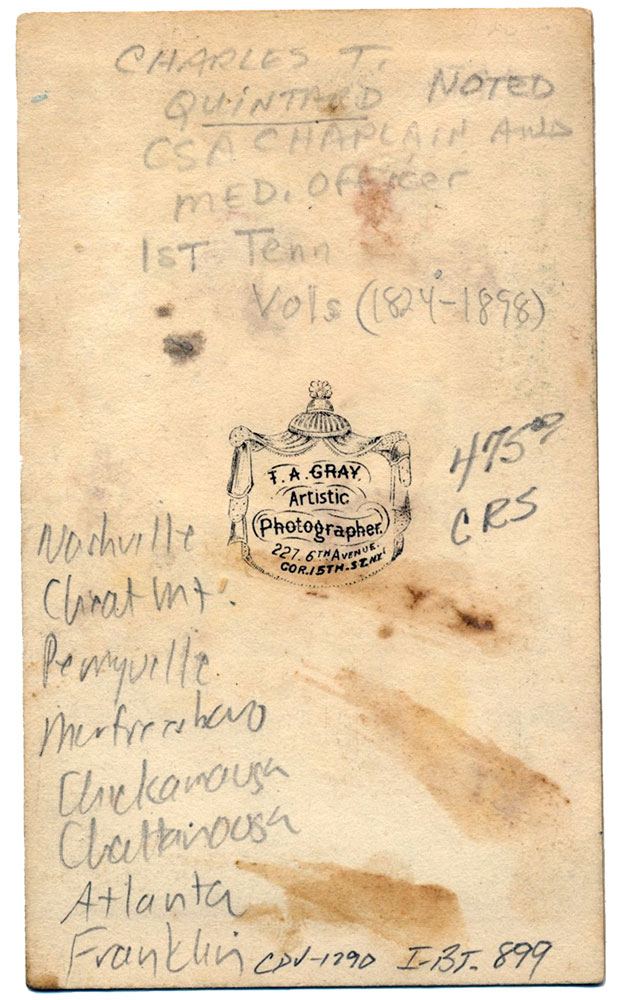 CHARLES T.
QUINTARD NOTED
CSA CHAPLAIN AND
MED. OFFicer
1ST Tenn
Vols (1824-1898)
T. A. GRAY.
Artistic
Photographer.
227. 6TH AVENUE.
COR. 15TH. ST. N.Y.
475.00
CRS
Nashville
Cheat Mt.
Perryville
Murfreesboro
Chickamauga
Chattanooga
Atlanta
Franklin CDV-1290 I-BJ. 899